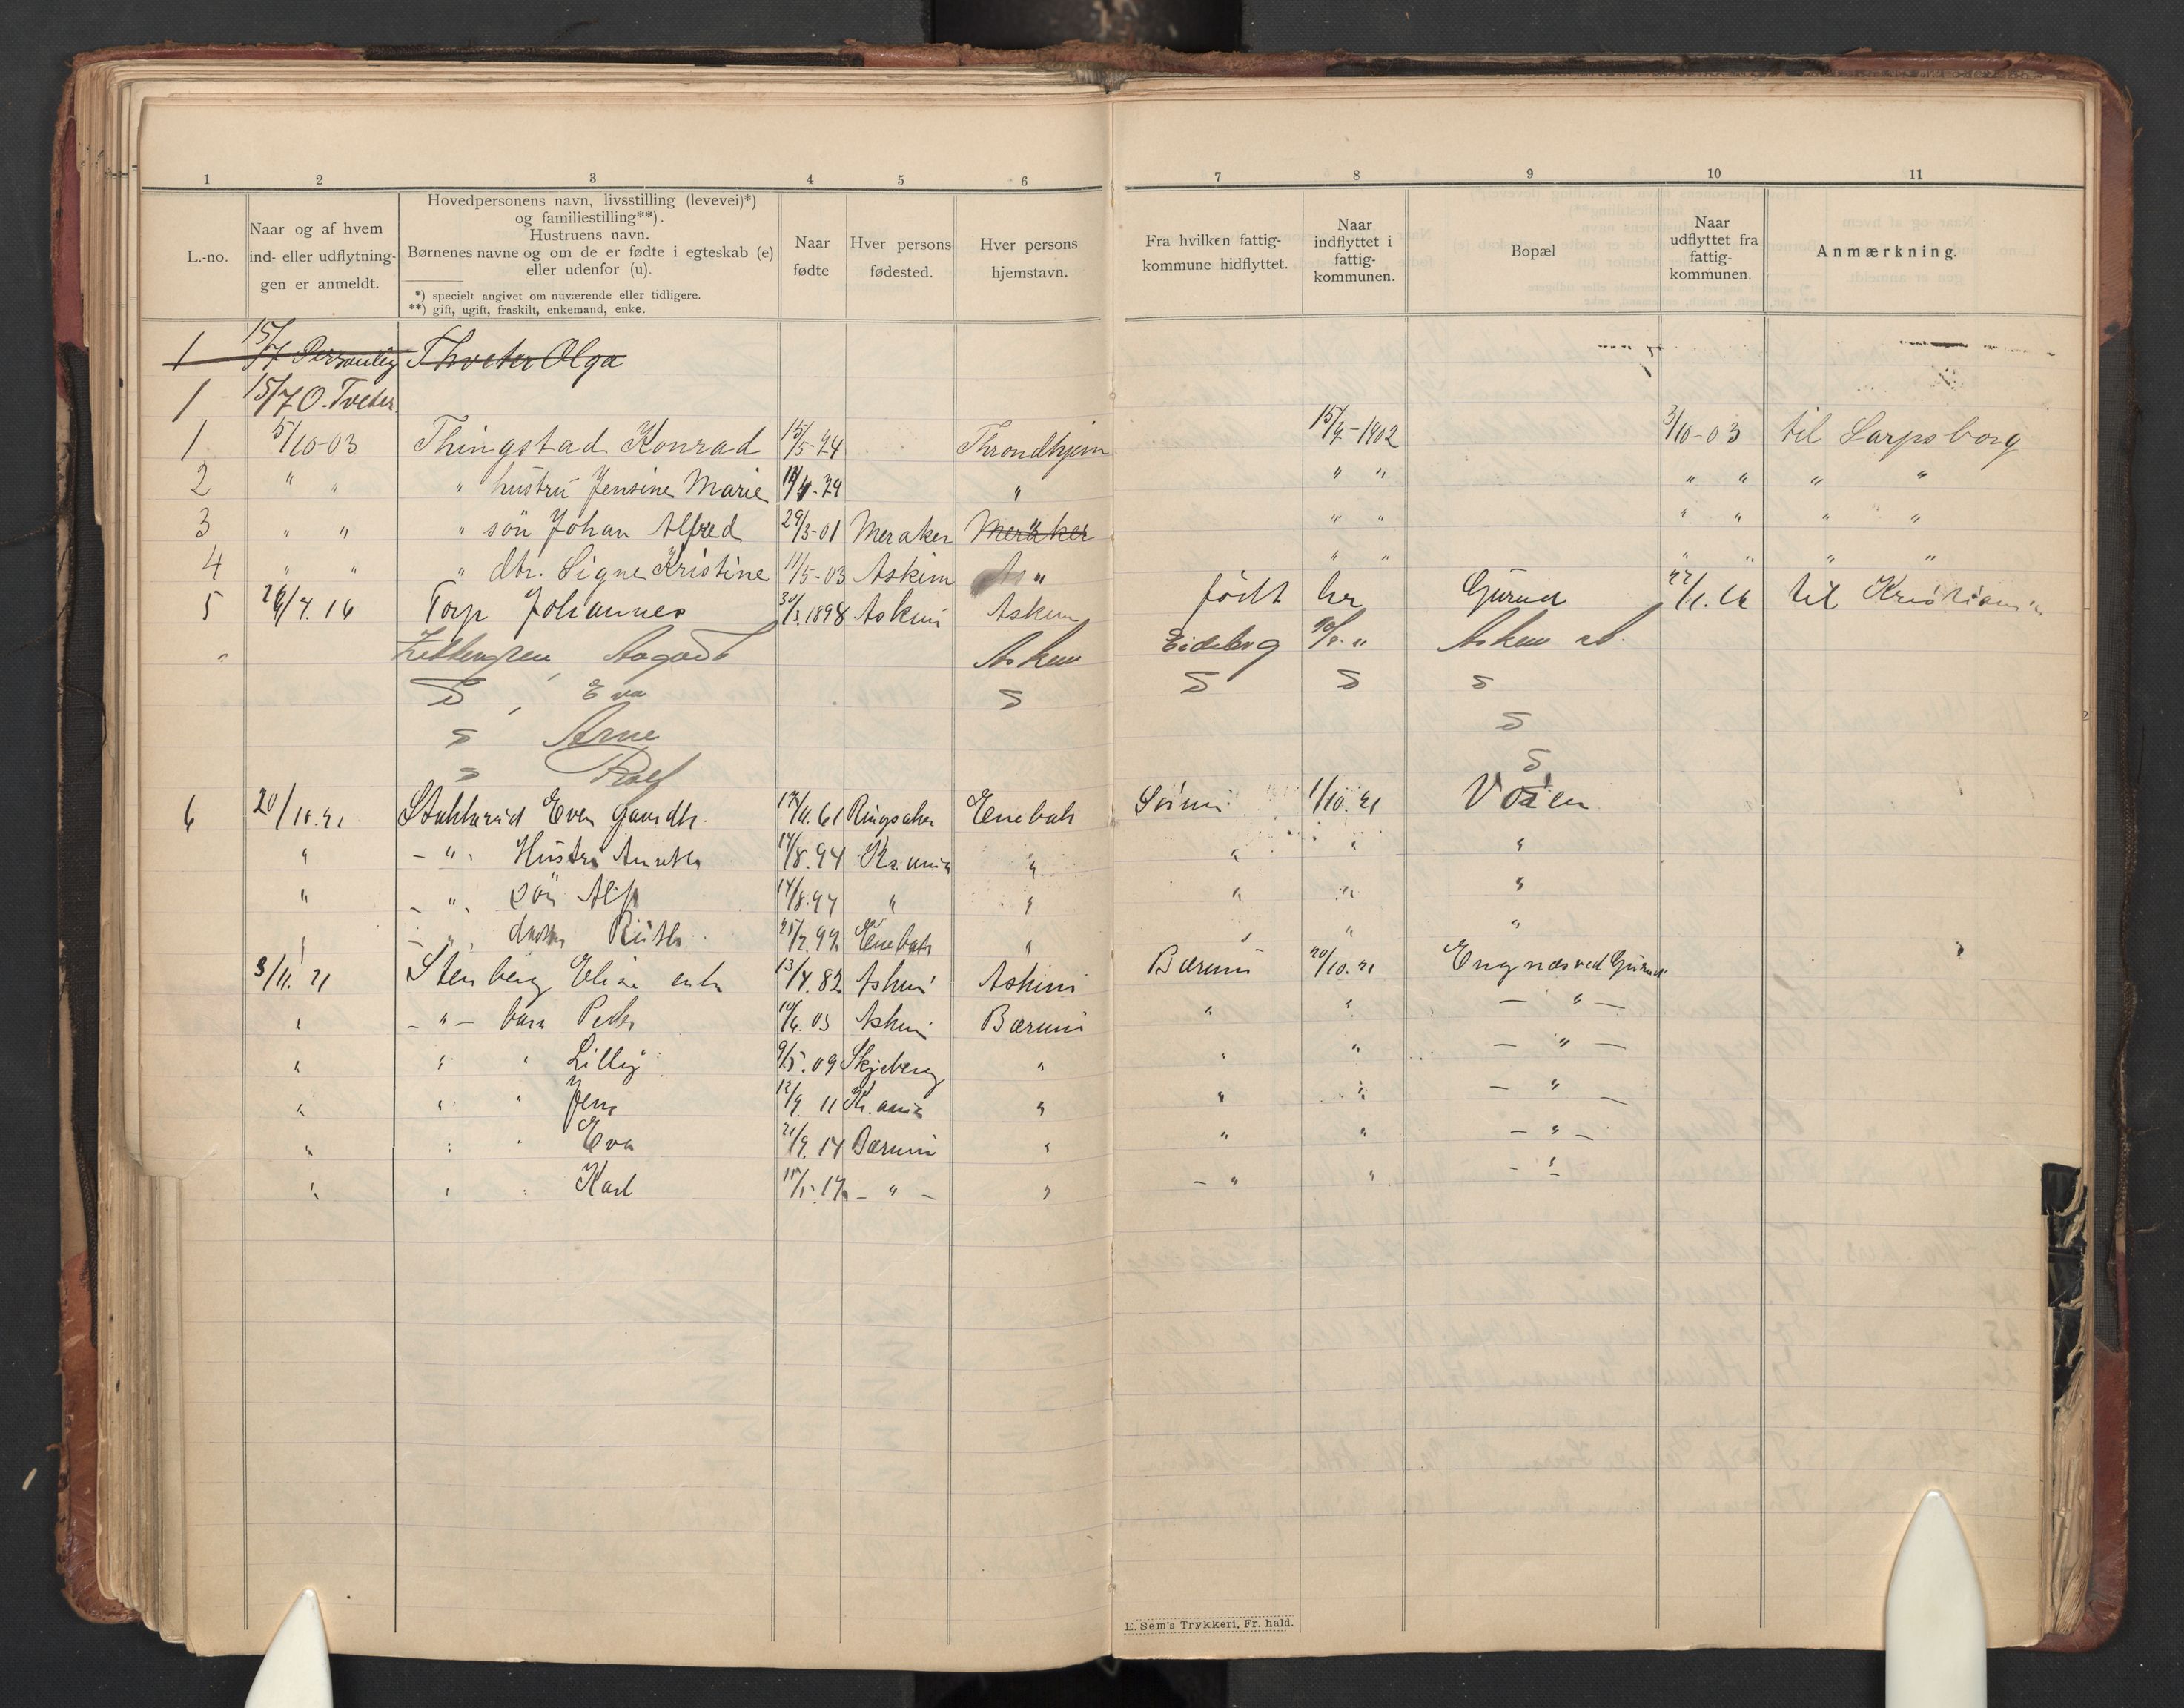 1 2 3 4 5 6 7 8 9 10 11
L.-no.
Naar og af hvem
ind- eller udflytnin-
gen er anmeldt.
Hovedpersonens navn, livsstilling (levevei)*)
og familiestilling**).
Hustruens navn.
Børnenes navne og om de er fødte i egteskab (e)
eller udenfor (u).
*) specielt angivet om nuværende eller tidligere.
**) gift, ugift, fraskilt, enkemand, enke.
Naar
fødte
Hver persons
fødested.
Hver persons
hjemstavn.
Fra hvilken fattig-
kommune hidflyttet.
Naar
indflyttet i
fattig-
kommunen.
Bopæl
Naar
udflyttet fra
fattig-
kommunen.
Anmærkning.
1 15/7 Personlig Thveter Olga
1 15/7 O. Tveter
1 5/10-03 Thingstad Konrad 15/5-74 Throndhjem 15/4-1902 3/10-03 til Sarpsborg
2 " " " hustru Jensine Marie 14/4-79 " " " " " " "
3 " " " søn Johan Alfred 29/3-01 Meraker Meraker " " " " " " "
4 " " " dtr. Signe Kristine 11/5-03 Askim " " " " " " "
5 26/4.16 Torp Johannes 30/3.1898 Askim Askim født her Gurud 22/1.16 til Kristiania
" Aagodt Askim Eidsberg " Askim st.
D Eva D D D D
D Arne D
D Rolf D
6 20/10.21 Even 61 Ringsaker Enebak 1/10.21
" - " - Hustru 14/8.94 Kr.ania " " " "
" - " - søn Alf 14/8.97 " " " " "
" - " - datter Ruth 99 Enebak " " " "
3/11.21 Stenberg Elise enke 13/4.82 Askim Askim Bærum 20/10.21 Engnæs ved Gurud
" - " - barn Peder 03 Askim Bærum " " - " -
" " " Lilly 9/5.09 Skjeberg " " " - " -
" " " Jens 12/9.11 Kr.ania " " " - " -
" " " Eva 21/9.14 Bærum " " " - " -
" " " Karl 17 - " - " - " " - " -
E. Sem's Trykkeri, Fr. hald.